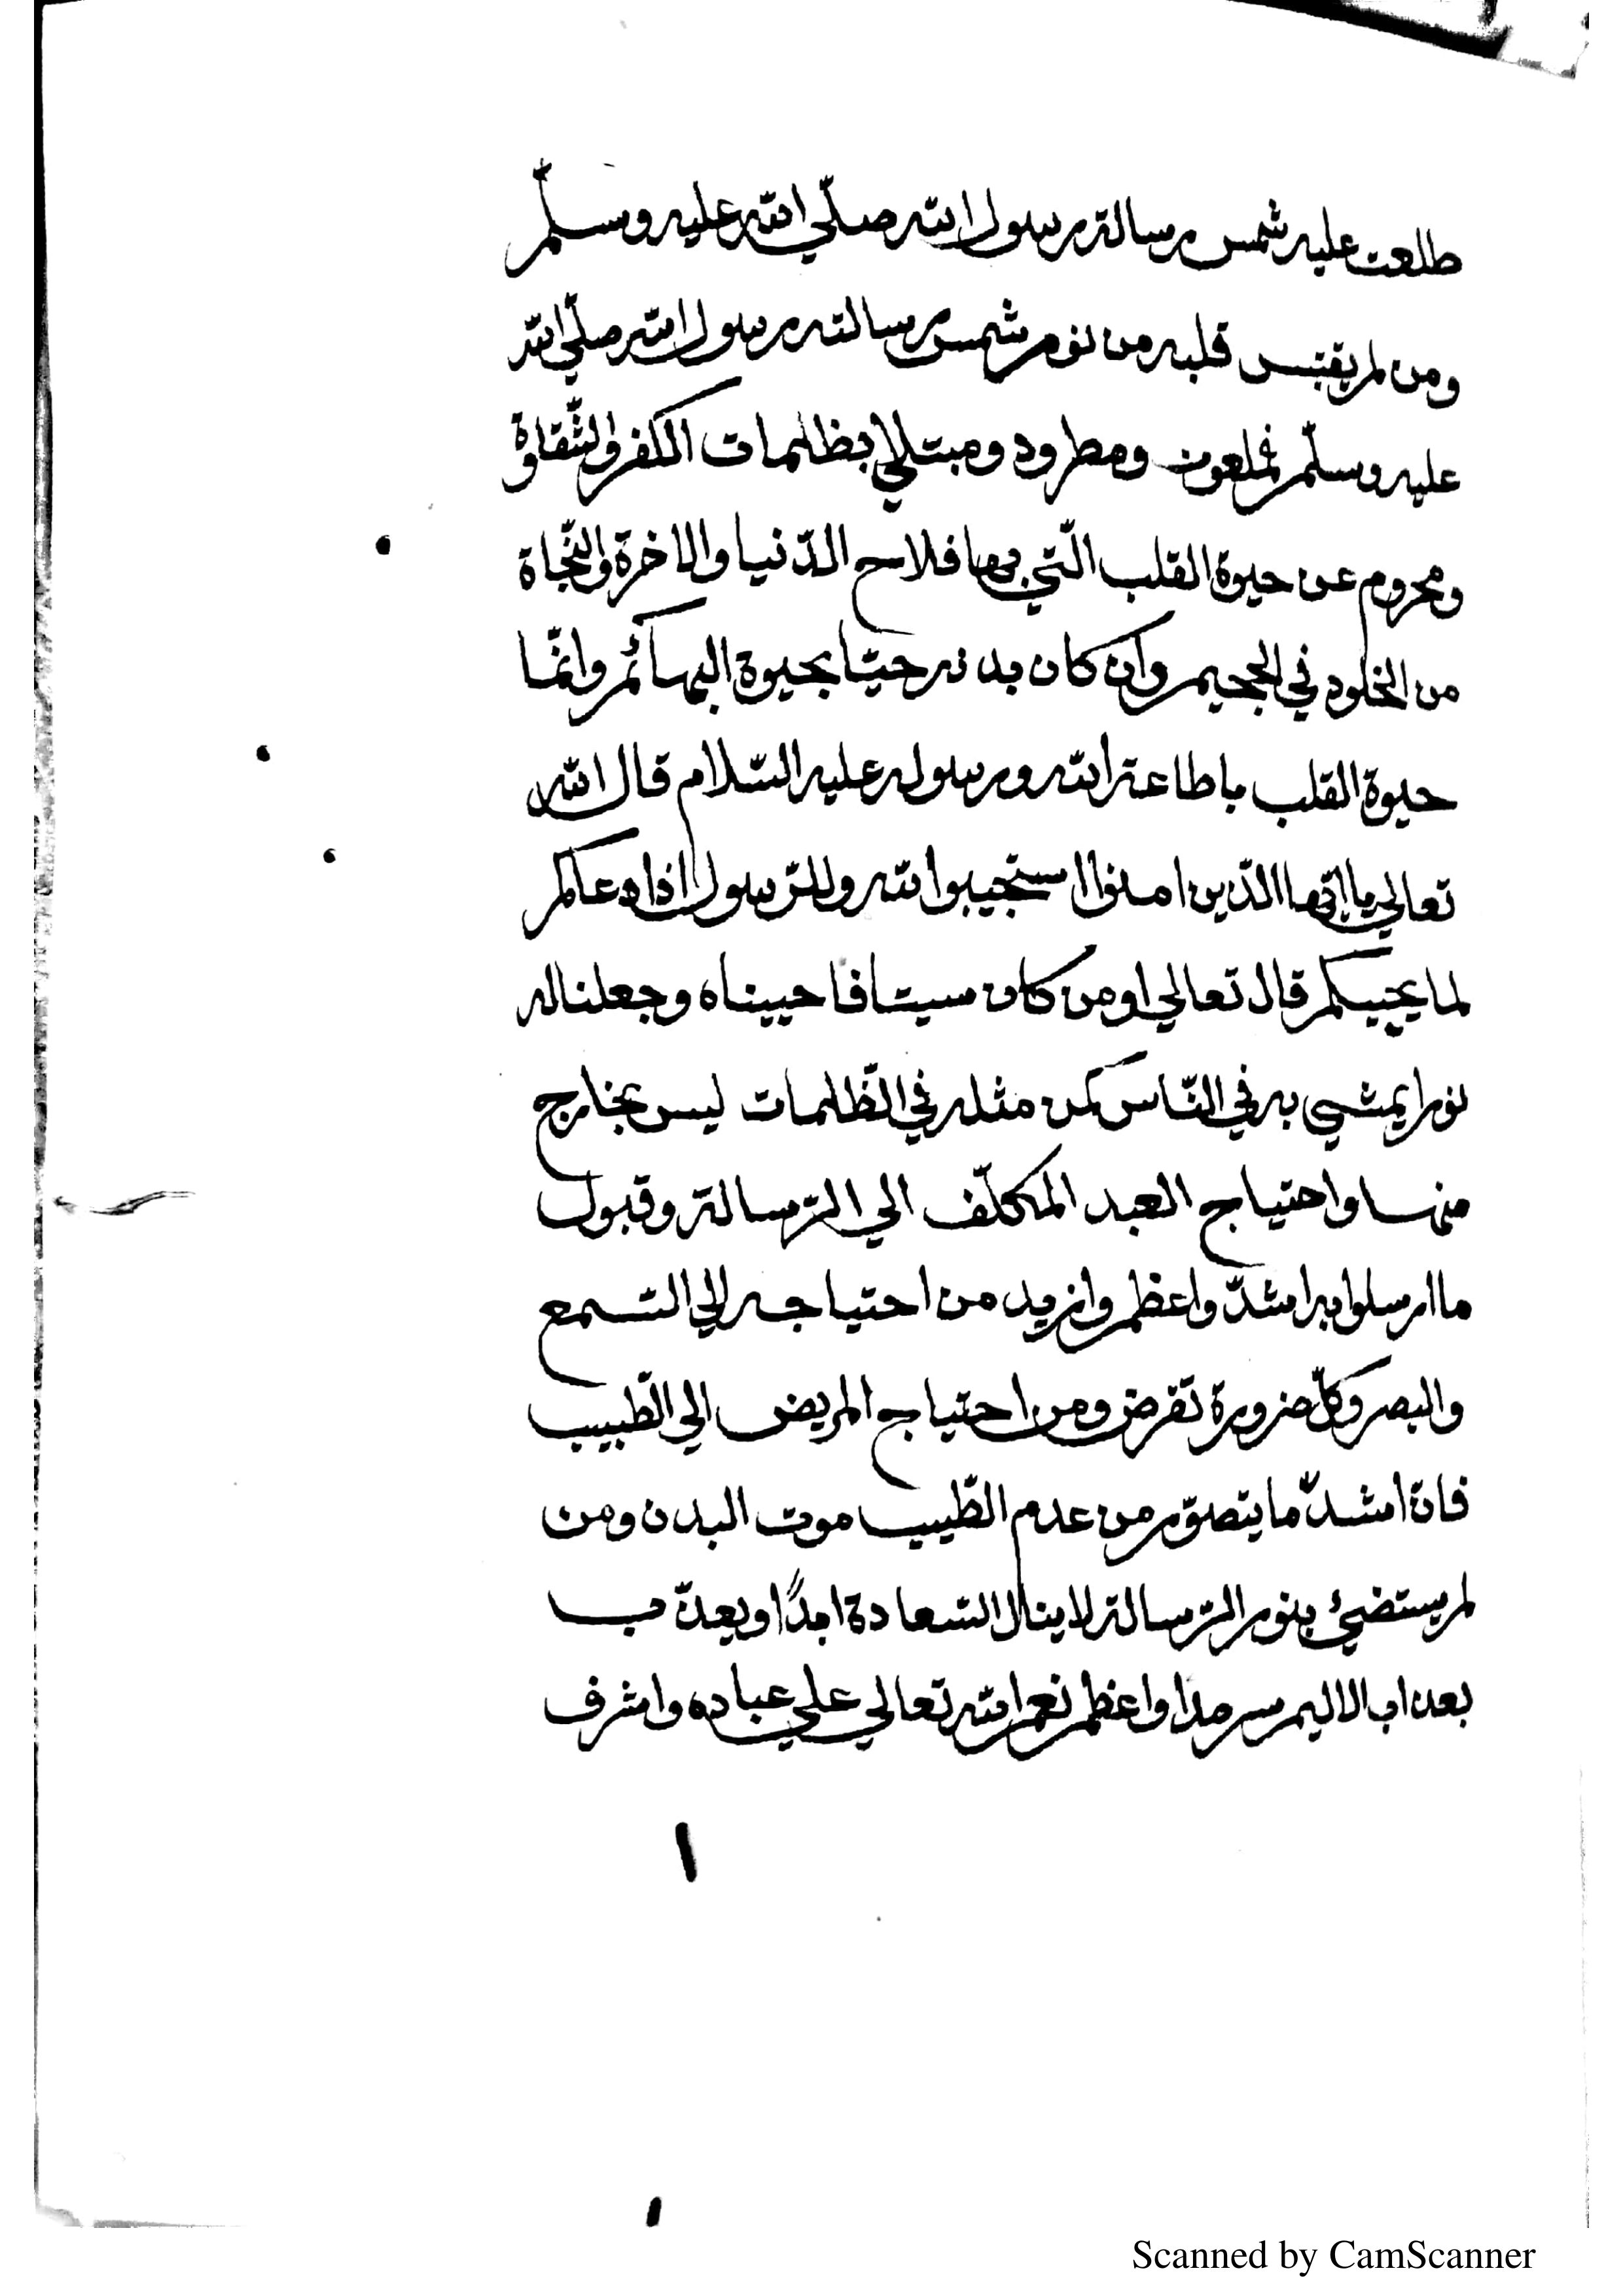 طلعت عليه شمس رسالة رسول الله صلّي الله عليه وسلّم
ومن لم يقتبس قلبه من نور شمس رسالته رسول الله صلّي الله
عليه وسلّم فملعون ومطرود ومبتلاي بظلمات الكفر والشّقاوة
ومحروم عن حيوة القلب الّتي بها فلاح الدّنيا والاخرة والنّجاة
من الخلود في الجحيم وان كان بدنه حيّا بحيوة البهائم وانّما
حيوة القلب باطاعة الله ورسوله عليه السّلام قال الله
تعالي ياايّها الّذين امنوا استجيبوا لله وللرّسول اذا دعاكم
لما يحييكم قال تعالي اومن كان ميتا فاحييناه وجعلنا له
نورا يمشي به في النّاس كمن مثله في الظّلمات ليس بخارج
منها واحتياج العبد المكلّف الي الرّسالة وقبول
ما ارسلوا به اشدّ واعظم وازيد من احتياجه الي السّمع
والبصر وكلّ ضرورة تفرض ومن احتياج المريض الي الطّبيب
فانّ اشدّ ما يتصوّر من عدم الطّبيب موت البدن ومن
لم يستضيئ بنور الرّسالة لا ينال السّعادة ابدًا ويعذّب
بعذاب الاليم سرمدا واعظم نعم الله تعالي علي عباده واشرف
١
Scanned by CamScanner